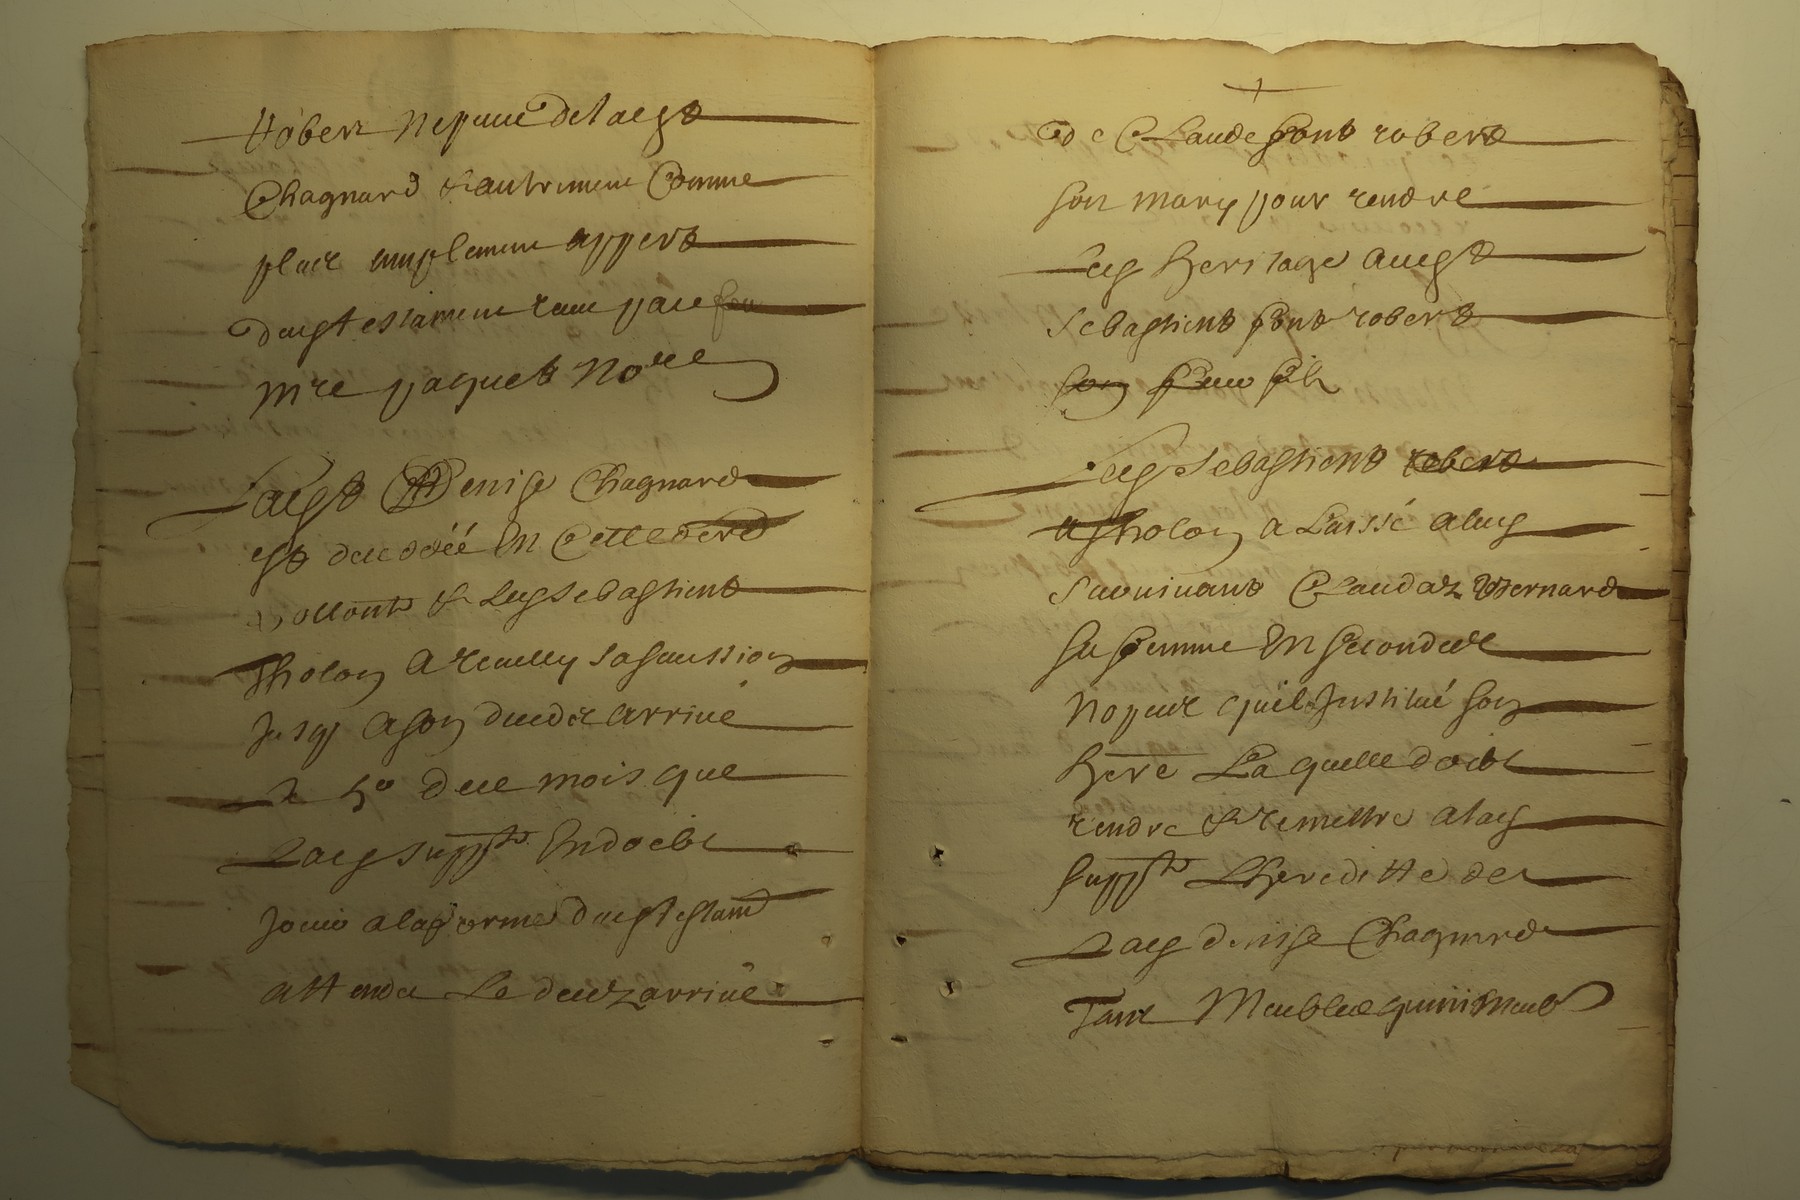 Robert Nepveu de lad^t
Chagnard & autrement Comme
plus amplement appert
dud^t testament receu par feu
M^re paquet No^re
Lad^t Denise Chagnard
est decedéé En Cette
vollonté & led Sebastient
Tholon a recully sa sucession
Jusq a son deces arrivé
le 5^e dece mois que
Lad supp^te En doibt
Jouir a la forme dud testam^t
attendu Le deces arrivé
de Claude font robert
son mary pour rendre
led heritage aud^t
Sebastient font robert
son feu fils
Led Sebastient Robert
Tholon a Laissé aluy
Survivant Claudaz Bernard
sa femme En seconde
Nopces qu'il Justitué son
here Laquelle doibt
rendre & remettre a lad
supp^te Lhereditté de
Lad denise Chagnard
Tant Meubles qu'immeub